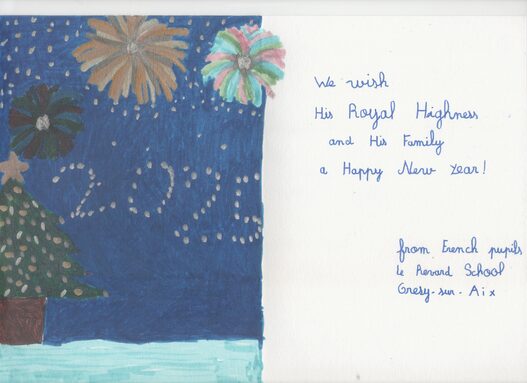 We wish
His Royal Highness
and His Family
a Happy New Year!
from French pupils
Le Revard School
Gresy-sur-Aix